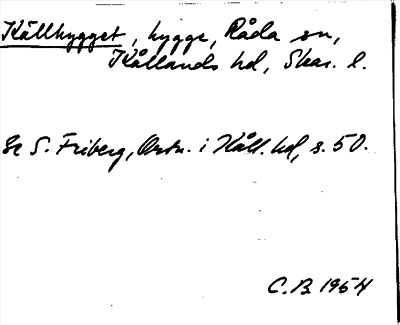 Källhygget, hygge, Råda sn,
Kållands hd, Skar. l.
Se S. Friberg, Ortn. i Kåll. hd, s. 50.
C.B. 1954